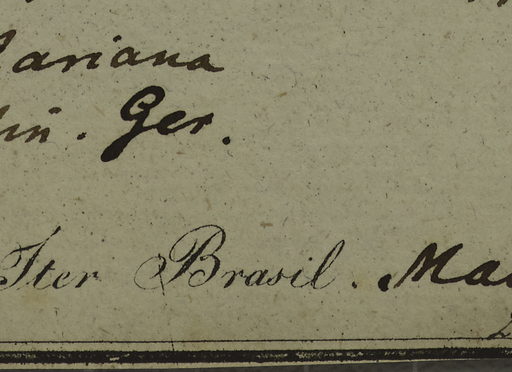 Mariana
Min. Ger.
Iter Brasil. Ma